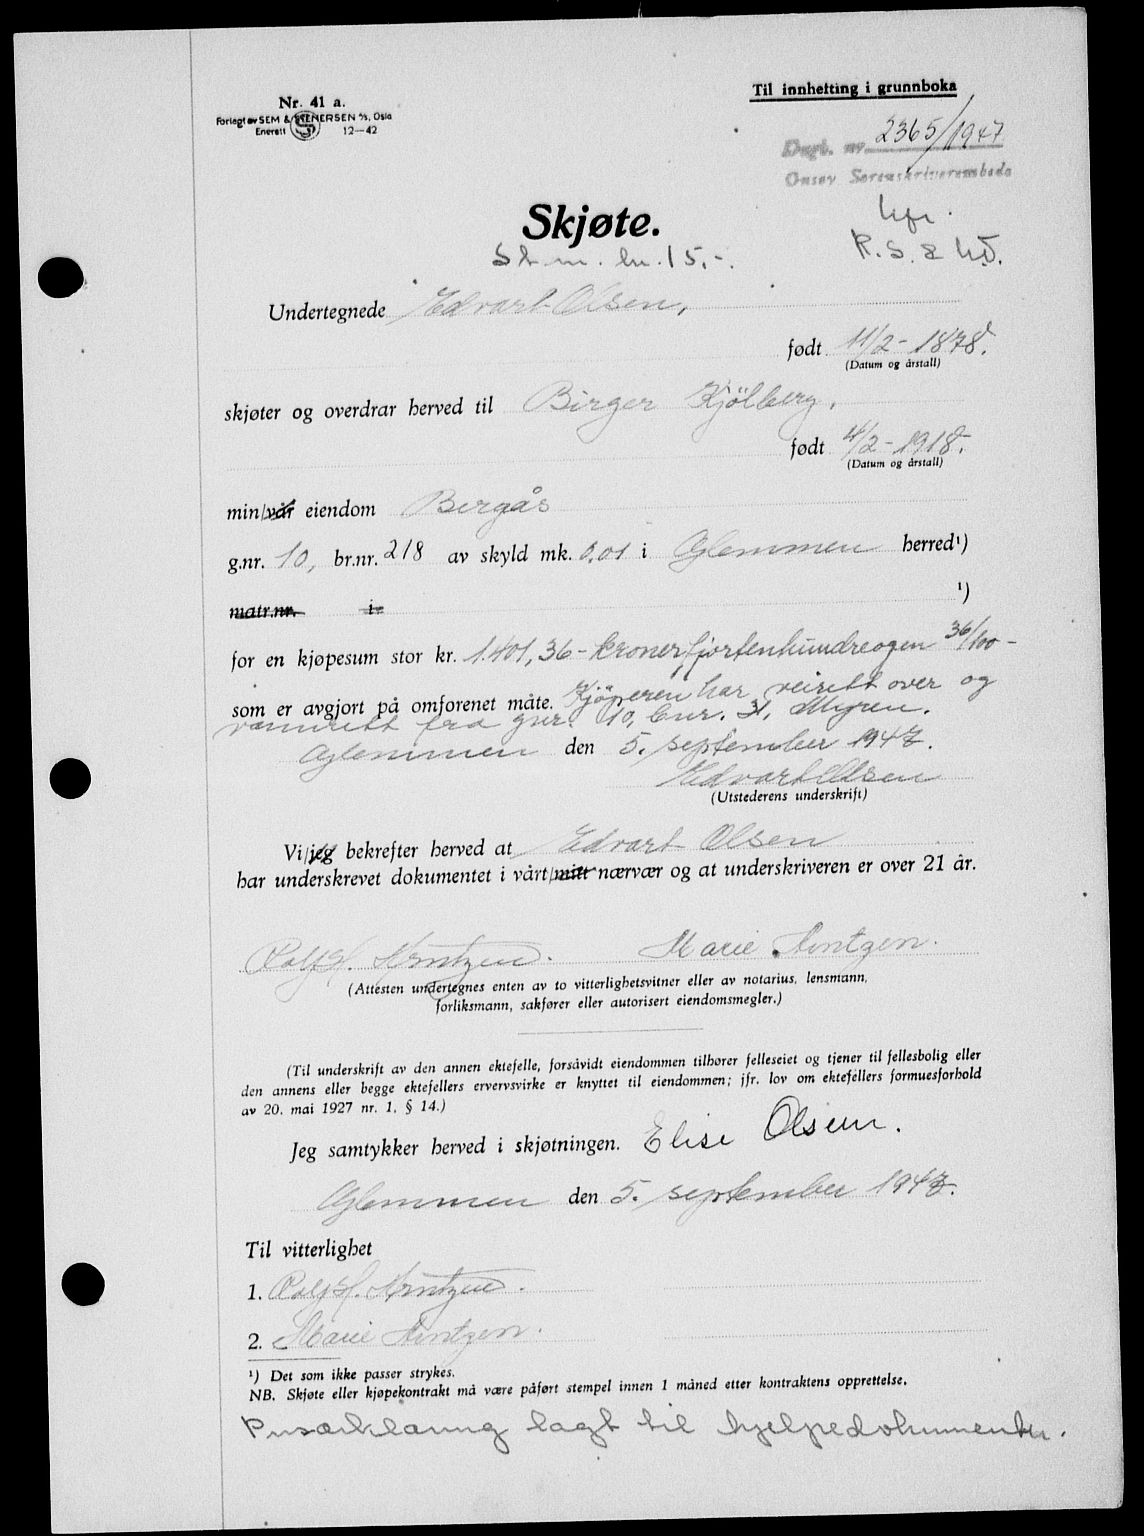 Til innhefting i grunnboka
Nr. 41 a.
Forlegt av SEM & STENERSEN A/S, Oslo
Enerett 12—42
Dagb. nr. 2365/1947
Onsøy Sorenskriverembede
Skjøte.
St.m. kr. 15,-.
R. S. &
Undertegnede Edvart Olsen,
født 11/2 - 1878.
(Datum og årstall)
skjøter og overdrar herved til Birger Kjölberg,
født 4/2 - 1918.
(Datum og årstall)
min/vår eiendom Bergås
g.nr. 10, br.nr. 218 av skyld mk. 0,01 i Glemmen herred¹)
matr.nr. i ¹)
for en kjøpesum stor kr. 1.401,36 - kroner fjortenhundreogen 36/100 -
som er avgjort på omforenet måte. Kjöperen har veirett over og
vannrett fra gnr. 10, bnr. 31, Myren.
Glemmen den 5. september 1947.
Edvart Olsen
(Utstederens underskrift)
Vi/jeg bekrefter herved at Edvart Olsen
har underskrevet dokumentet i vårt/mitt nærvær og at underskriveren er over 21 år.
Rolf H. Arntzen. Marie Arntzen.
(Attesten undertegnes enten av to vitterlighetsvitner eller av notarius, lensmann,
forliksmann, sakfører eller autorisert eiendomsmegler.)
(Til underskrift av den annen ektefelle, forsåvidt eiendommen tilhører felleseiet og tjener til fellesbolig eller
den annens eller begge ektefellers ervervsvirke er knyttet til eiendommen; jfr. lov om ektefellers formuesforhold
av 20. mai 1927 nr. 1, § 14.)
Jeg samtykker herved i skjøtningen. Elise Olsen.
Glemmen den 5. september 1947.
Til vitterlighet
1. Rolf H. Arntzen.
2. Marie Arntzen.
¹) Det som ikke passer strykes.
NB. Skjøte eller kjøpekontrakt må være påført stempel innen 1 måned etter kontraktens opprettelse.
Priserklæring lagt til hjelpedokumenter.